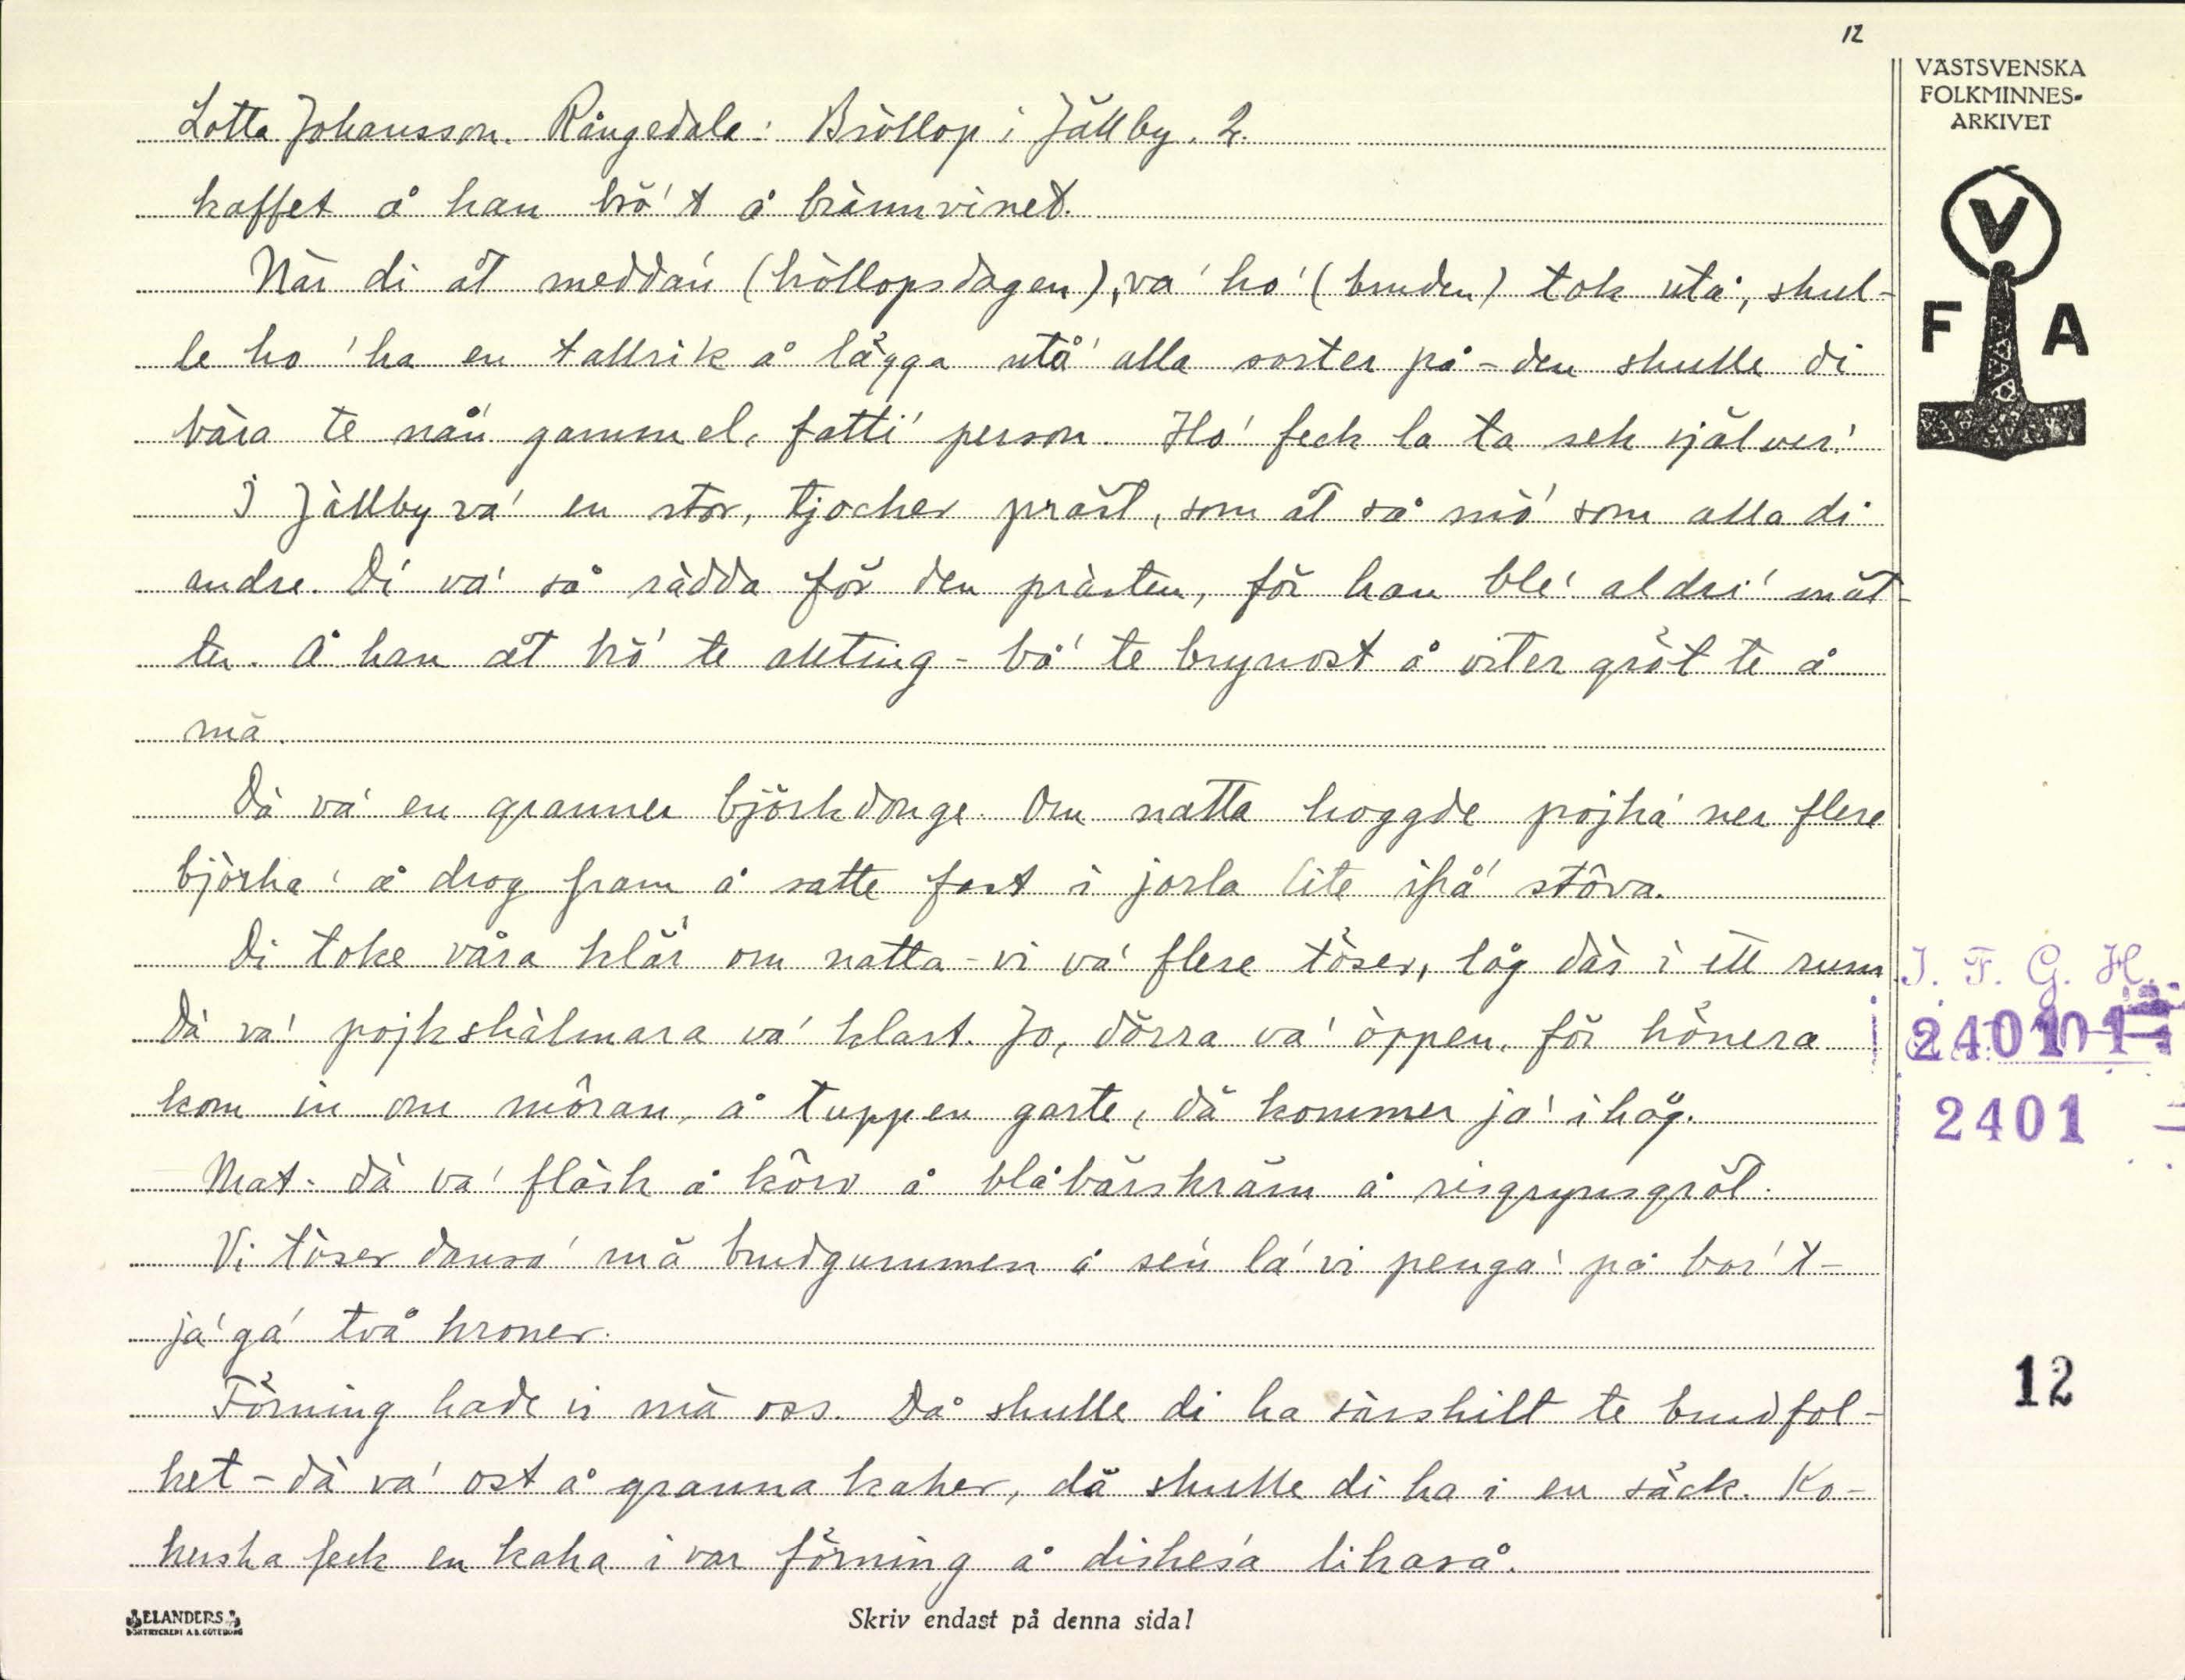 12
VÄSTSVENSKA
FOLKMINNES-
ARKIVET
V
F A
Lotta Johansson. Rångedala: Bröllop i Jällby. 2.
kaffet å han brö't å brännvinet.
När di åt meddan' (bröllopsdagen), va' ho' (bruden) tok utå', skul-
le ho' ha en tallrik å lägga utå' alla sorter på - den skulle di
bära te nån' gammel, fatti' person. Ho' feck la ta seh själver!
I Jällby va' en stor, tjocker präst, som åt så mö' som alla di
andre. Di va' så rädda för den prästen, för han ble' aldri' mät-
ter. Å han åt brö' te allting - bå' te brynost å viter gröt te å
mä.
Dä va' en granner björkdonge. Om natta hoggde pojka' ner flere
björka' å drog fram å satte fast i jorla lite ifrå' stôva.
Di toke våra klär' om natta - vi va' flere töser, låg där i ett rum
Dä va' pojkskälmara va' klart. Jo, dörra va' öppen, för hönera
kom in om môran, å tuppen garte, dä kommer ja' ihåg.
Mat - dä va' fläsk å kôrv å blåbärskräm å risgrynsgröt.
Vi töser dansa' mä brudgummen å sen' la' vi penga' på bor't -
ja' ga' två kroner.
Förning hade vi mä oss. Då skulle di ha särskilt te brudfol-
ket - dä va' ost å granna kaker, dä skulle di ha i en säck. Ko-
kerska feck en kaka i var förning å diskesa likaså.
I. F. G. H.
2401
12
ELANDERS
BOKTRYCKERI A.B. GÖTEBORG
Skriv endast på denna sida!